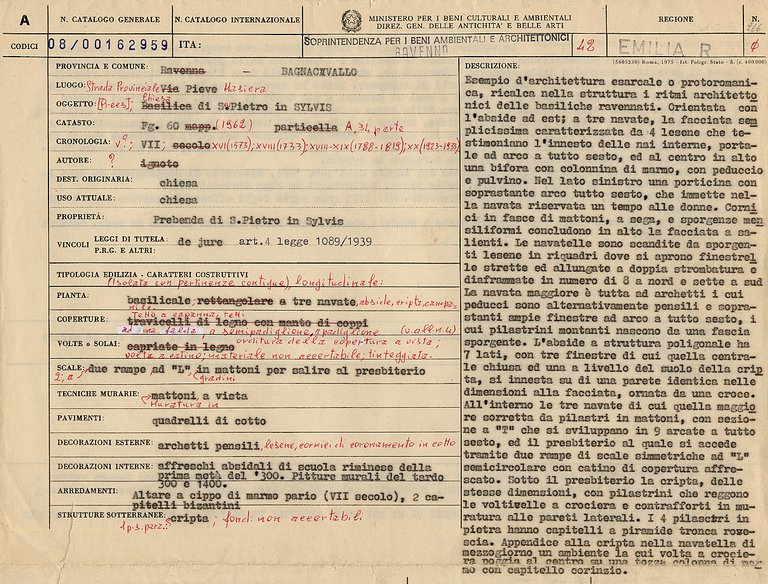 A
N. CATALOGO GENERALE
N. CATALOGO INTERNAZIONALE
MINISTERO PER I BENI CULTURALI E AMBIENTALI
DIREZ. GEN. DELLE ANTICHITA' E BELLE ARTI
REGIONE
N.
CODICI
08/00162959
ITA:
SOPRINTENDENZA PER I BENI AMBIENTALI E ARCHITETTONICI
RAVENNA
42
EMILIA R
(5605239) Roma, 1975 - Ist. Poligr. Stato - S. (c. 400.000)
PROVINCIA E COMUNE: Ravenna - BAGNACAVALLO
LUOGO: Strada Provinciale Via Pieve Masiera
OGGETTO: [Pieve] Chiesa Basilica di S. Pietro in SYLVIS
CATASTO: Fg. 60 mapp. (1962) particella A, 34 parte
CRONOLOGIA: V?; VII; secolo XVI (1573); XVIII (1733); XVIII-XIX (1788-1819); XX (1923-1933)
AUTORE: ? ignoto
DEST. ORIGINARIA: chiesa
USO ATTUALE: chiesa
PROPRIETÀ: Prebenda di S.Pietro in Sylvis
VINCOLI
LEGGI DI TUTELA: de jure art.4 legge 1089/1939
P.R.G. E ALTRI:
TIPOLOGIA EDILIZIA - CARATTERI COSTRUTTIVI
(Isolata con pertinenze contigue), longitudinale:
PIANTA: basilicale, rettangolare a tre navate, abside, cripta, campanile
COPERTURE: Tetto a capanna, tetti
travicelli di legno con manto di coppi
ad una falda, a semipadiglione, a padiglione (v. all. n. 4)
VOLTE o SOLAI: capriate in legno orditura della copertura a vista;
volta a catino: materiale non accertabile, tinteggiata.
SCALE: due rampe ad "L" in mattoni per salire al presbiterio
2; a gradini
TECNICHE MURARIE: mattoni a vista
Muratura in
PAVIMENTI: quadrelli di cotto
DECORAZIONI ESTERNE: archetti pensili, lesene, cornici di coronamento in cotto
DECORAZIONI INTERNE: affreschi absidali di scuola riminese della
prima metà del '300. Pitture murali del tardo
300 e 1400.
ARREDAMENTI: Altare a cippo di marmo pario (VII secolo), 2 ca-
pitelli bizantini
STRUTTURE SOTTERRANEE: cripta; fond.: non accertabili
1 p.s. parz.:
DESCRIZIONE:
Esempio d'architettura esarcale o protoromani-
ca, ricalca nella struttura i ritmi architetto
nici delle basiliche ravennati. Orientata con
l'abside ad est; a tre navate, la facciata sem
plicissima caratterizzata da 4 lesene che te-
stimoniano l'innesto delle nai interne, porta-
le ad arco a tutto sesto, ed al centro in alto
una bifora con colonnina di marmo, con peduccio
e pulvino. Nel lato sinistro una porticina con
soprastante arco tutto sesto, che immette nel-
la navata riservata un tempo alle donne. Corni
ci in fasce di mattoni, a sega, e sporgenze men
siliformi concludono in alto la facciata a sa-
lienti. Le navatelle sono scandite da sporgen-
ti lesene in riquadri dove si aprono finestrel
le strette ed allungate a doppia strombatura e
diaframmate in numero di 8 a nord e sette a sud
La navata maggiore è tutta ad archetti i cui
peduci sono alternativamente pensili e sopra-
stanti ampie finestre ad arco a tutto sesto, i
cui pilastrini montanti nascono da una fascia
sporgente. L'abside a struttura poligonale ha
7 lati, con tre finestre di cui quella centra-
le chiusa ed una a livello del suolo della crip
ta, si innesta su di una parete identica nelle
dimensioni alla facciata, ornata da una croce.
All'interno le tre navate di cui quella maggio
re sorretta da pilastri in mattoni, con sezio-
ne a "T" che si sviluppano in 9 arcate a tutto
sesto, ed il presbiterio al quale si accede
tramite due rampe di scale simmetriche ad "L"
semicircolare con catino di copertura affre-
scato. Sotto il presbiterio la cripta, delle
stesse dimensioni, con pilastrini che reggono
le voltivelle a crociera e contrafforti in mu-
ratura alle pareti laterali. I 4 pilastri in
pietra hanno capitelli a piramide tronca rove-
scia. Appendice alla cripta nella navatella di
mezzogiorno un ambiente la cui volta a crocie-
ra poggia al centro su una tozza colonna di mar
mo con capitello corinzio.